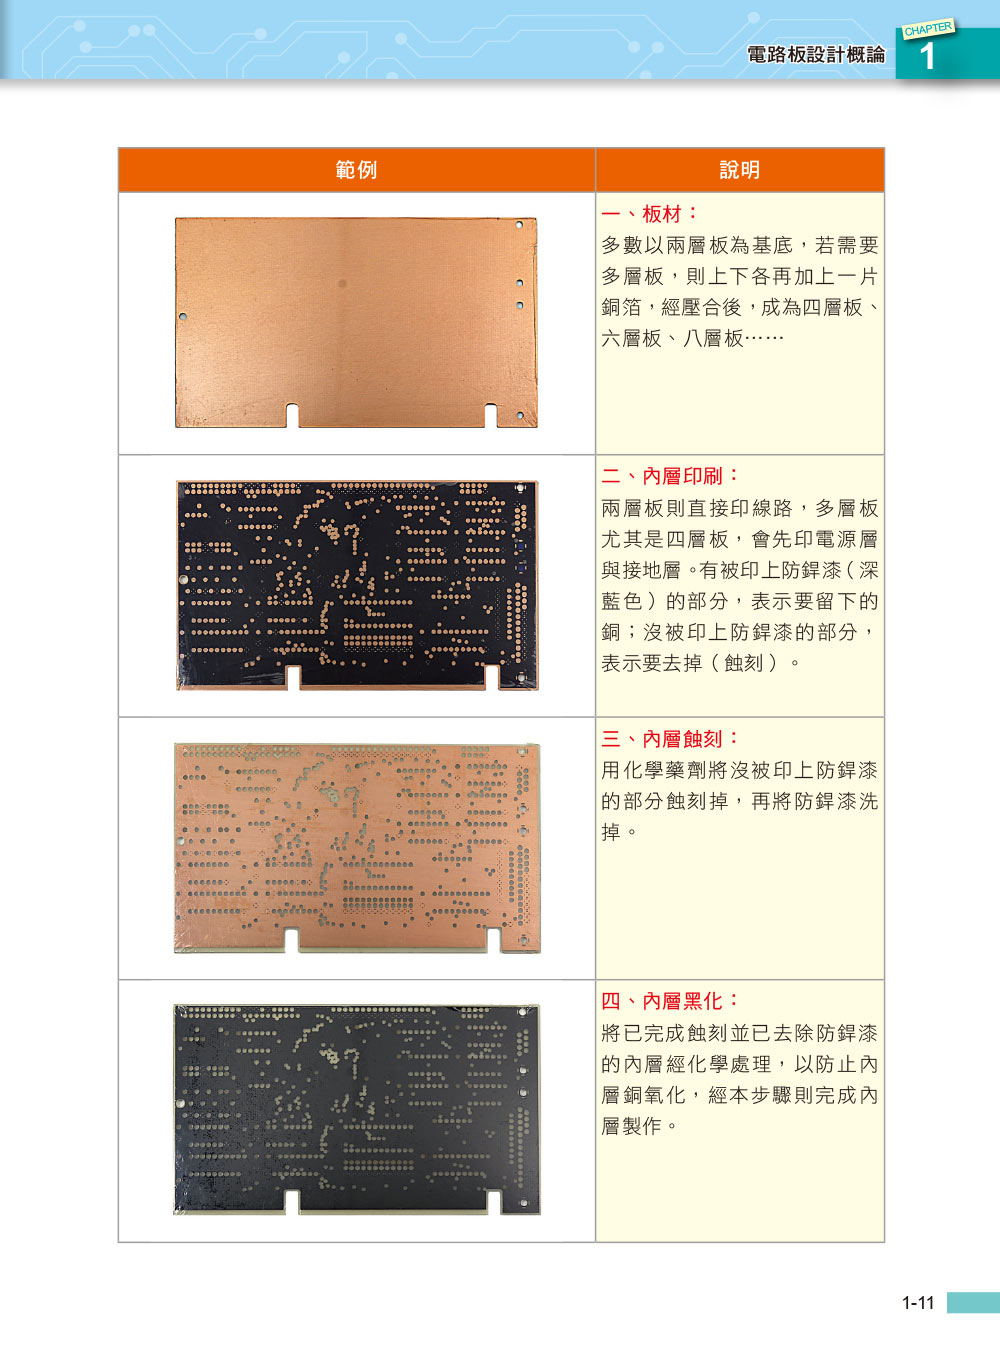 電路板設計概論
CHAPTER
1
範例
說明
一、板材：
多數以兩層板為基底，若需要
多層板，則上下各再加上一片
銅箔，經壓合後，成為四層板、
六層板、八層板……
二、內層印刷：
兩層板則直接印線路，多層板
尤其是四層板，會先印電源層
與接地層。有被印上防銲漆（深
藍色）的部分，表示要留下的
銅；沒被印上防銲漆的部分，
表示要去掉（蝕刻）。
三、內層蝕刻：
用化學藥劑將沒被印上防銲漆
的部分蝕刻掉，再將防銲漆洗
掉。
四、內層黑化：
將已完成蝕刻並已去除防銲漆
的內層經化學處理，以防止內
層銅氧化，經本步驟則完成內
層製作。
1-11